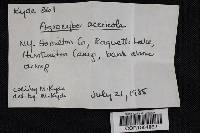 Kyde 861
Agrocybe acericola
NY. Hamilton Co, Raquette Lake,
Huntington Camp, bank above
swamp
coll. by M. Kyde
det. by M. Kyde
July 21, 1985